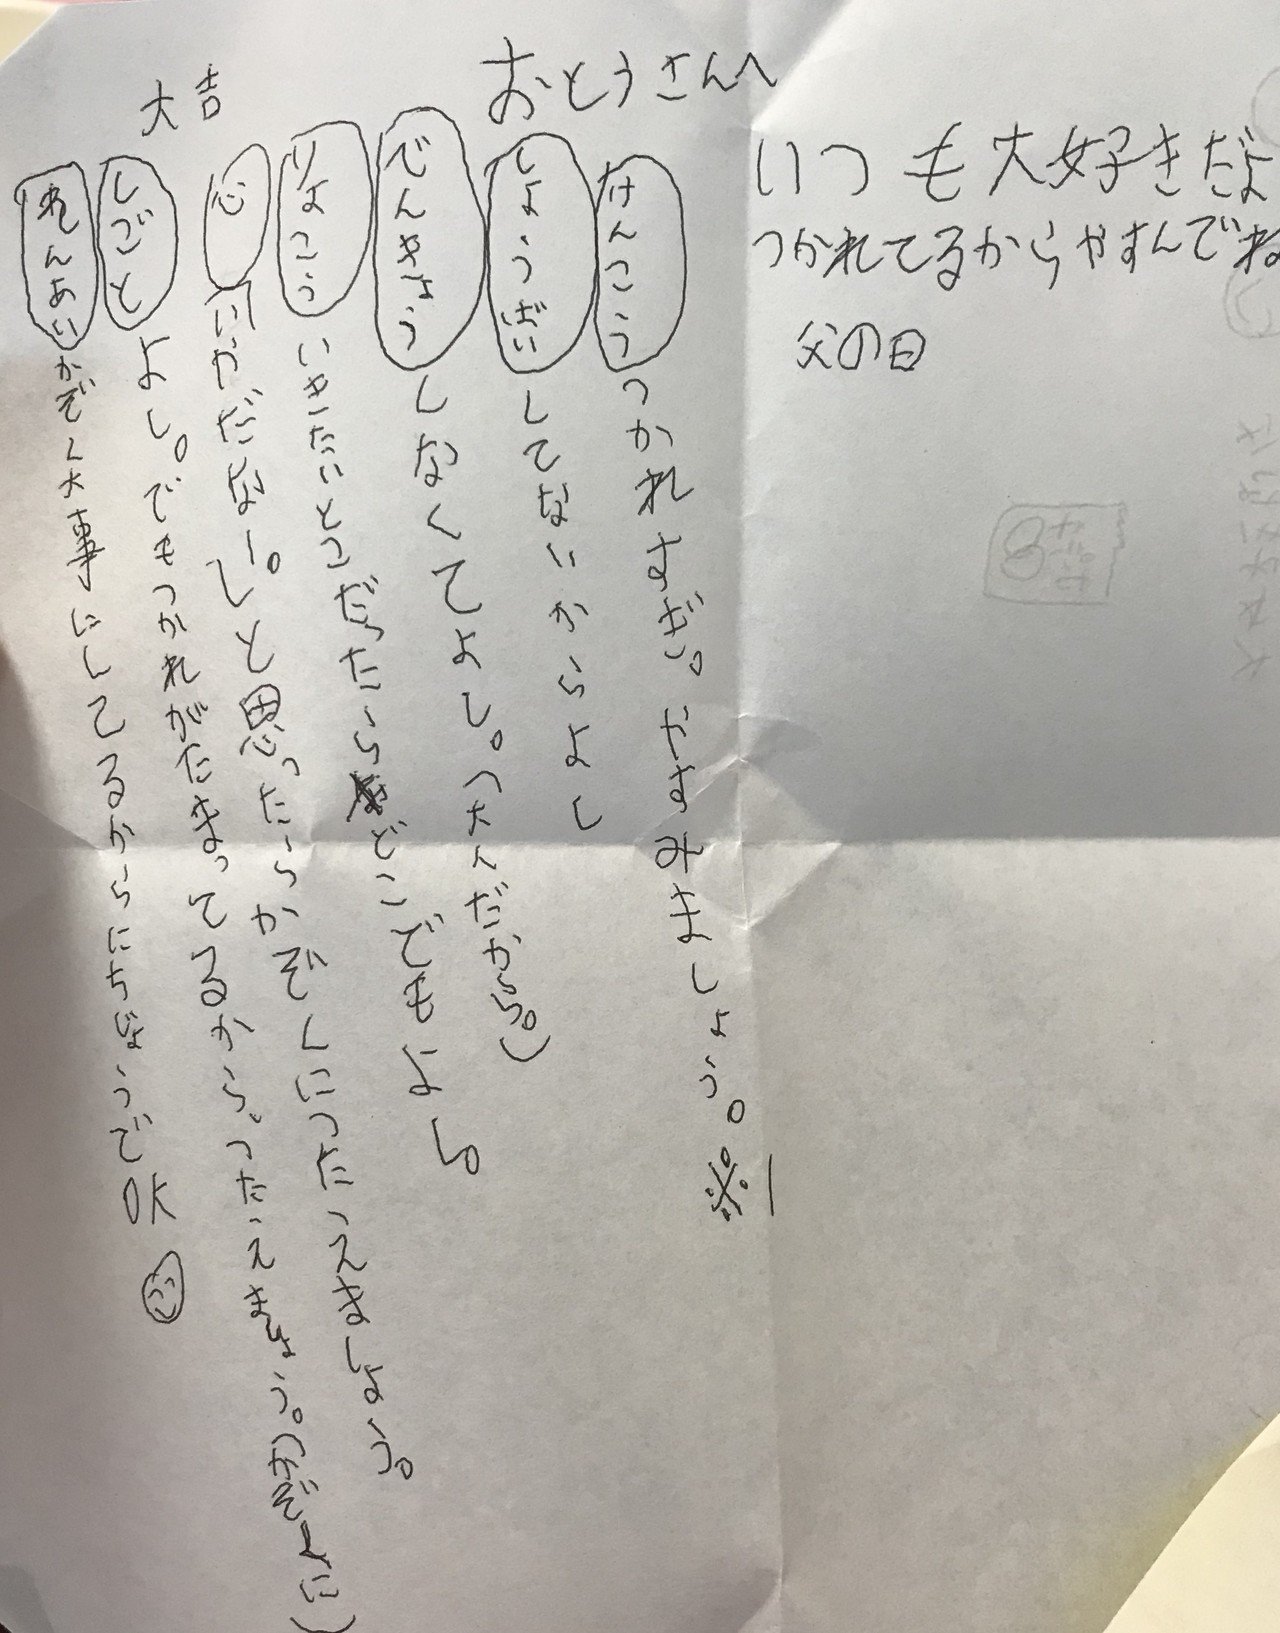 おとうさんへ
いつも大好きだよ
つかれてるからやすんでね
父の日
大吉
けんこう つかれすぎ。やすみましょう。※
しょうばい してないからよし
べんきょう しなくてよし。(大人だから。)
りょこう いきたいとこだったらどこでもよし。
心 「いやだなー。」と思ったらかぞくにつたえましょう。
しごと よし。でもつかれがたまってるから、つたえましょう。(かぞくに)
れんあい かぞく大事にしてるからにちじょうでOK